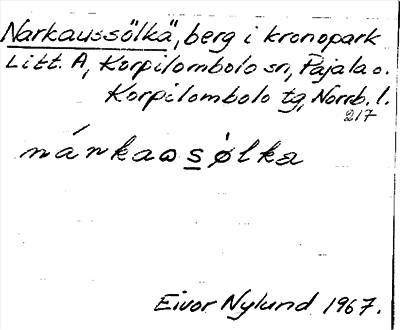 Narkaussölkä, berg i kronopark
Litt. A, Korpilombolo sn, Pajala o.
Korpilombolo tg, Norrb. l.
217
nárkaɷsølka
Eivor Nylund 1967.